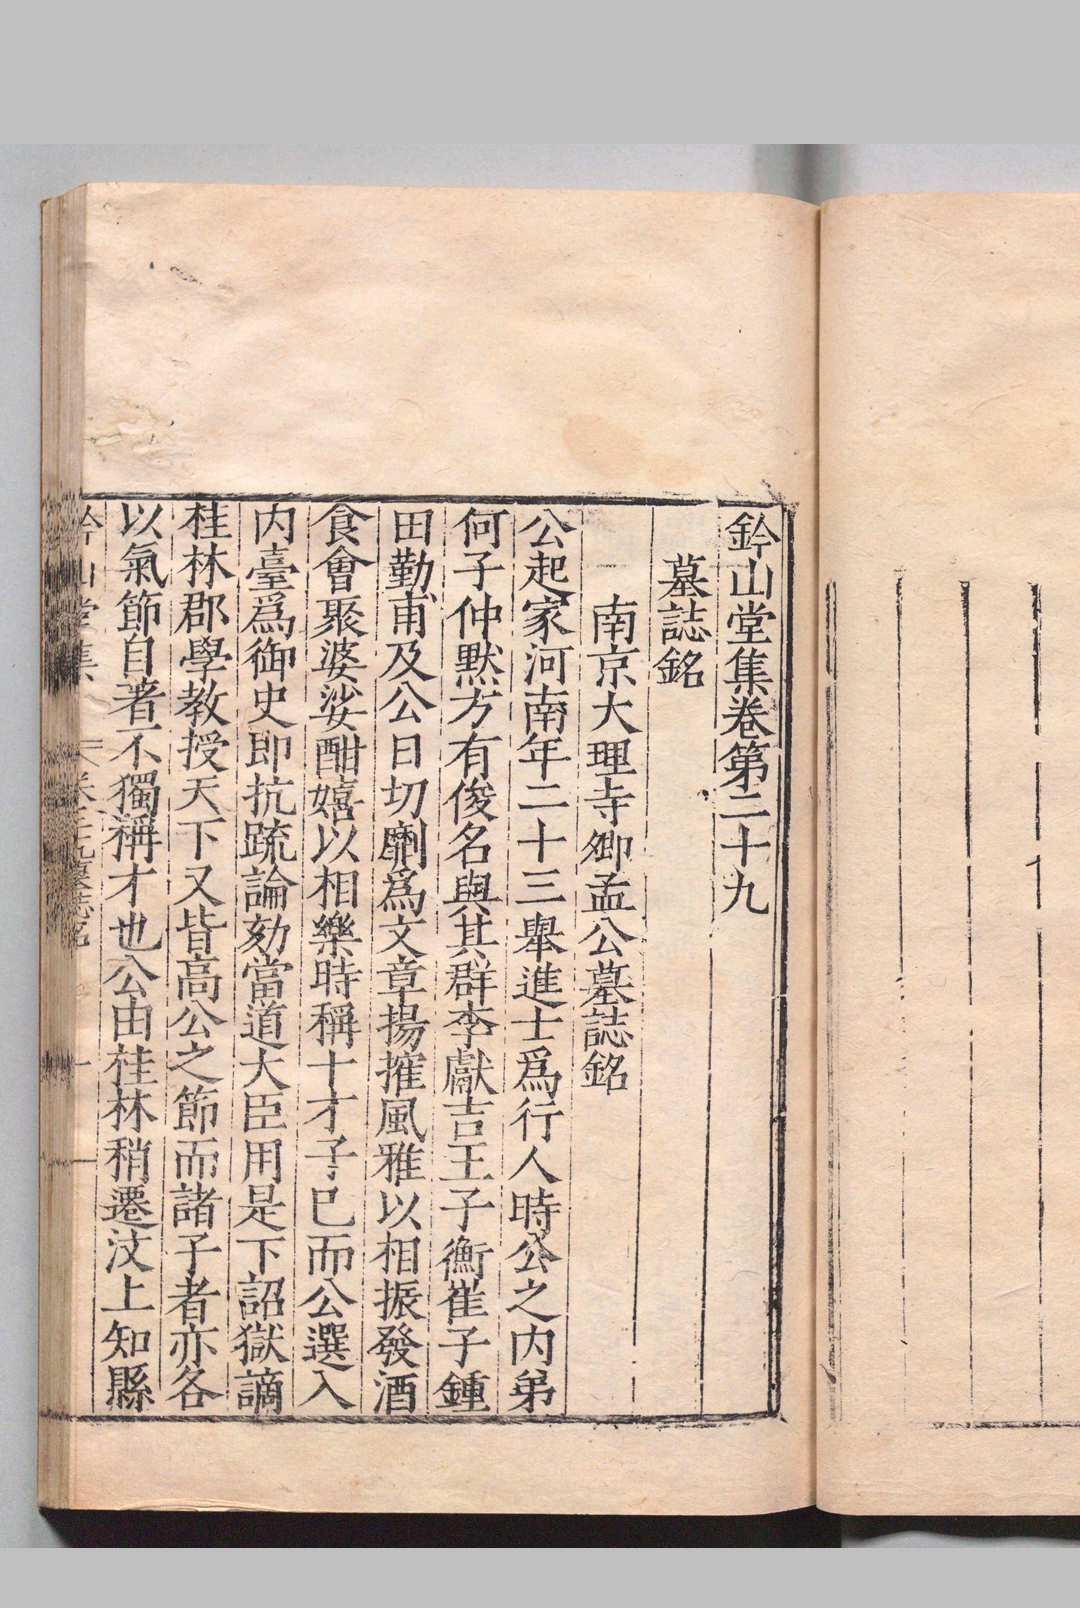 鈐山堂集卷第二十九
墓誌銘
南京大理寺卿孟公墓誌銘
公起家河南年二十三舉進士爲行人時公之内弟
何子仲默方有俊名與其群李獻吉王子衡崔子鍾
田勤甫及公日切劘爲文章揚搉風雅以相振發酒
食會聚婆娑酣嬉以相樂時稱十才子已而公選入
内臺爲御史即抗疏論劾當道大臣用是下詔獄謫
桂林郡學教授天下又皆高公之節而諸子者亦各
以氣節自著不獨稱才也公由桂林稍遷汶上知縣
鈐山堂集